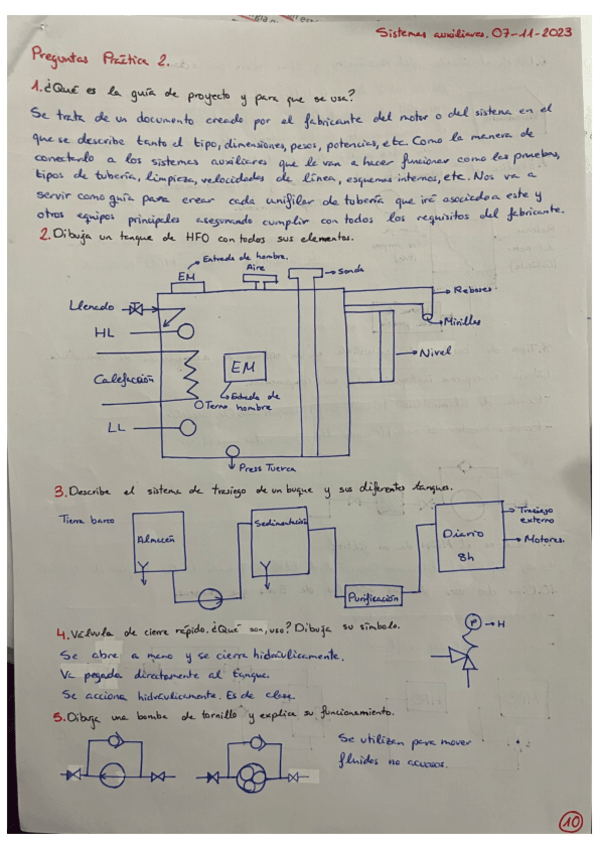 Sistemas auxiliares. 07-11-2023
Preguntas Práctica 2.
1. ¿Qué es la guía de proyecto y para que se usa?
Se trata de un documento creado por el fabricante del motor o del sistema en el
que se describe tanto el tipo, dimensiones, pesos, potencias, etc. Como la manera de
conectarlo a los sistemas auxiliares que le van a hacer funcionar como las pruebas,
tipos de tubería, limpieza, velocidades de línea, esquemas internos, etc. Nos va a
servir como guía para crear cada unifilar de tubería que irá asociado a este y
otros equipos principales asegurando cumplir con todos los requisitos del fabricante.
2. Dibuja un tanque de HFO con todos sus elementos.
Entrada de hombre.
EM
Aire
Sonda
Reboses
Llenado
Mirillas
HL
Nivel
EM
Calefacción
Entrada de
hombre
Termo
LL
Press Tuerca
3. Describe el sistema de trasiego de un buque y sus diferentes tanques.
Tierra barco
Almacén
Sedimentación
Diario
8h
Trasiego
externo
Motores.
Purificación
4. Válvula de cierre rápido. ¿Qué son, uso? Dibuja su símbolo.
P
H
Se abre a mano y se cierra hidráulicamente.
Va pegada directamente al tanque.
Se acciona hidráulicamente. Es de clase
5. Dibuja una bomba de tornillo y explica su funcionamiento.
Se utilizan para mover
fluidos no acuosos.
10